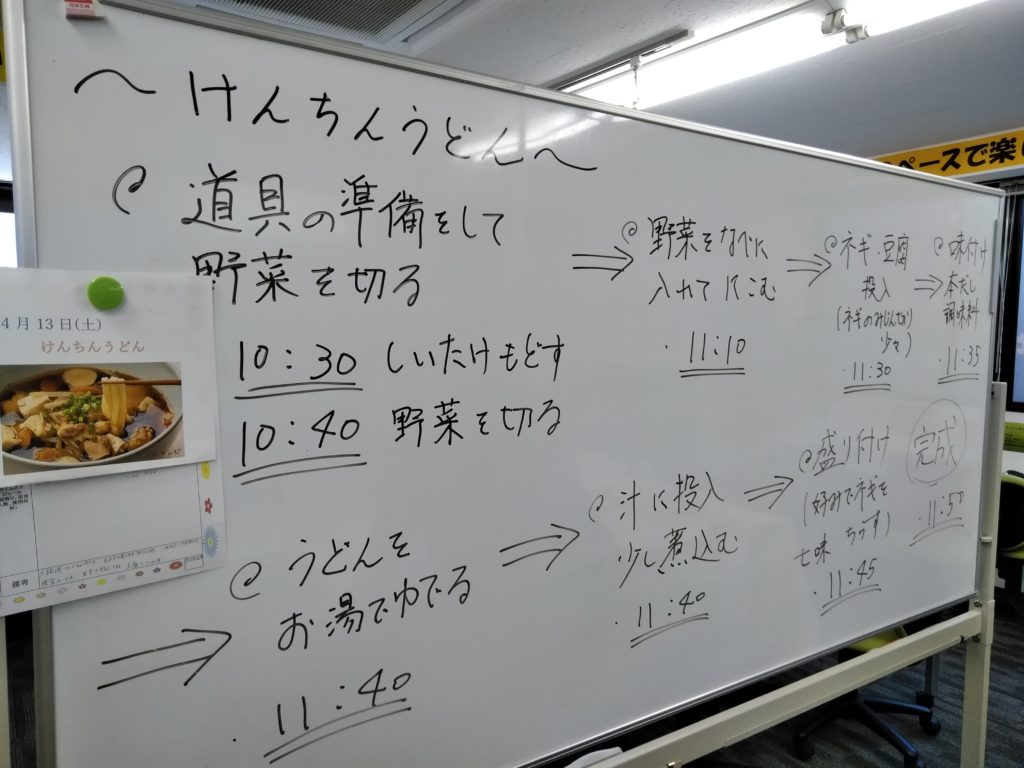 ～けんちんうどん～
道具の準備をして
野菜を切る
10:30 しいたけもどす
10:40 野菜を切る
⇒
野菜をなべに
入れてにこむ
・11:10
⇒
ネギ・豆腐
投入
(ネギのみじんぎり
少々)
・11:30
⇒
味付け
本だし
調味料
・11:35
⇒
うどんを
お湯でゆでる
・11:40
⇒
汁に投入
少し煮込む
・11:40
⇒
盛り付け
(好みでネギを
ちらす)
七味
・11:45
完成
・11:50
4月13日(土)
けんちんうどん
備考
ペースで楽し